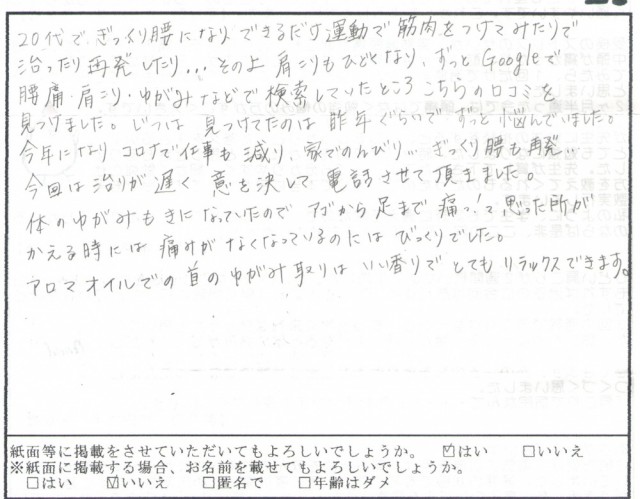 20代で、ぎっくり腰になり、できるだけ運動で筋肉をつけてみたりで
治ったり再発したり…その上肩こりもひどくなり、ずっとGoogleで
腰痛・肩こり・ゆがみなどで検索していたところこちらの口コミを
見つけました。じつは見つけてたのは昨年ぐらいでずっと悩んでいました。
今年になりコロナで仕事も減り、家でのんびり…ぎっくり腰も再発…
今回は治りが遅く意を決して電話させて頂きました。
体のゆがみもきになっていたのでアゴから足まで痛っ!て思った所が
かえる時には痛みがなくなっているのにはびっくりでした。
アロマオイルでの首のゆがみ取りはいい香りでとてもリラックスできます。
紙面等に掲載をさせていただいてもよろしいでしょうか。 ☑はい □いいえ
※紙面に掲載する場合、お名前を載せてもよろしいでしょうか。
□はい ☑いいえ □匿名で □年齢はダメ